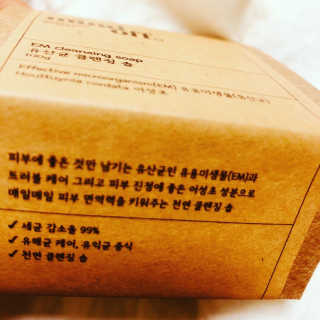 EM cleansing soap
유산균 클렌징 숍
100g
Effective microorganism(EM) 유용미생물(유산균)
Houttuynia cordata 어성초
피부에 좋은 것만 남기는 유산균인 유용미생물(EM)과
트러블 케어 그리고 피부 진정에 좋은 어성초 성분으로
매일매일 피부 면역력을 키워주는 천연 클렌징 숍
✓ 세균 감소율 99%
✓ 유해균 케어, 유익균 증식
✓ 천연 클렌징 숍